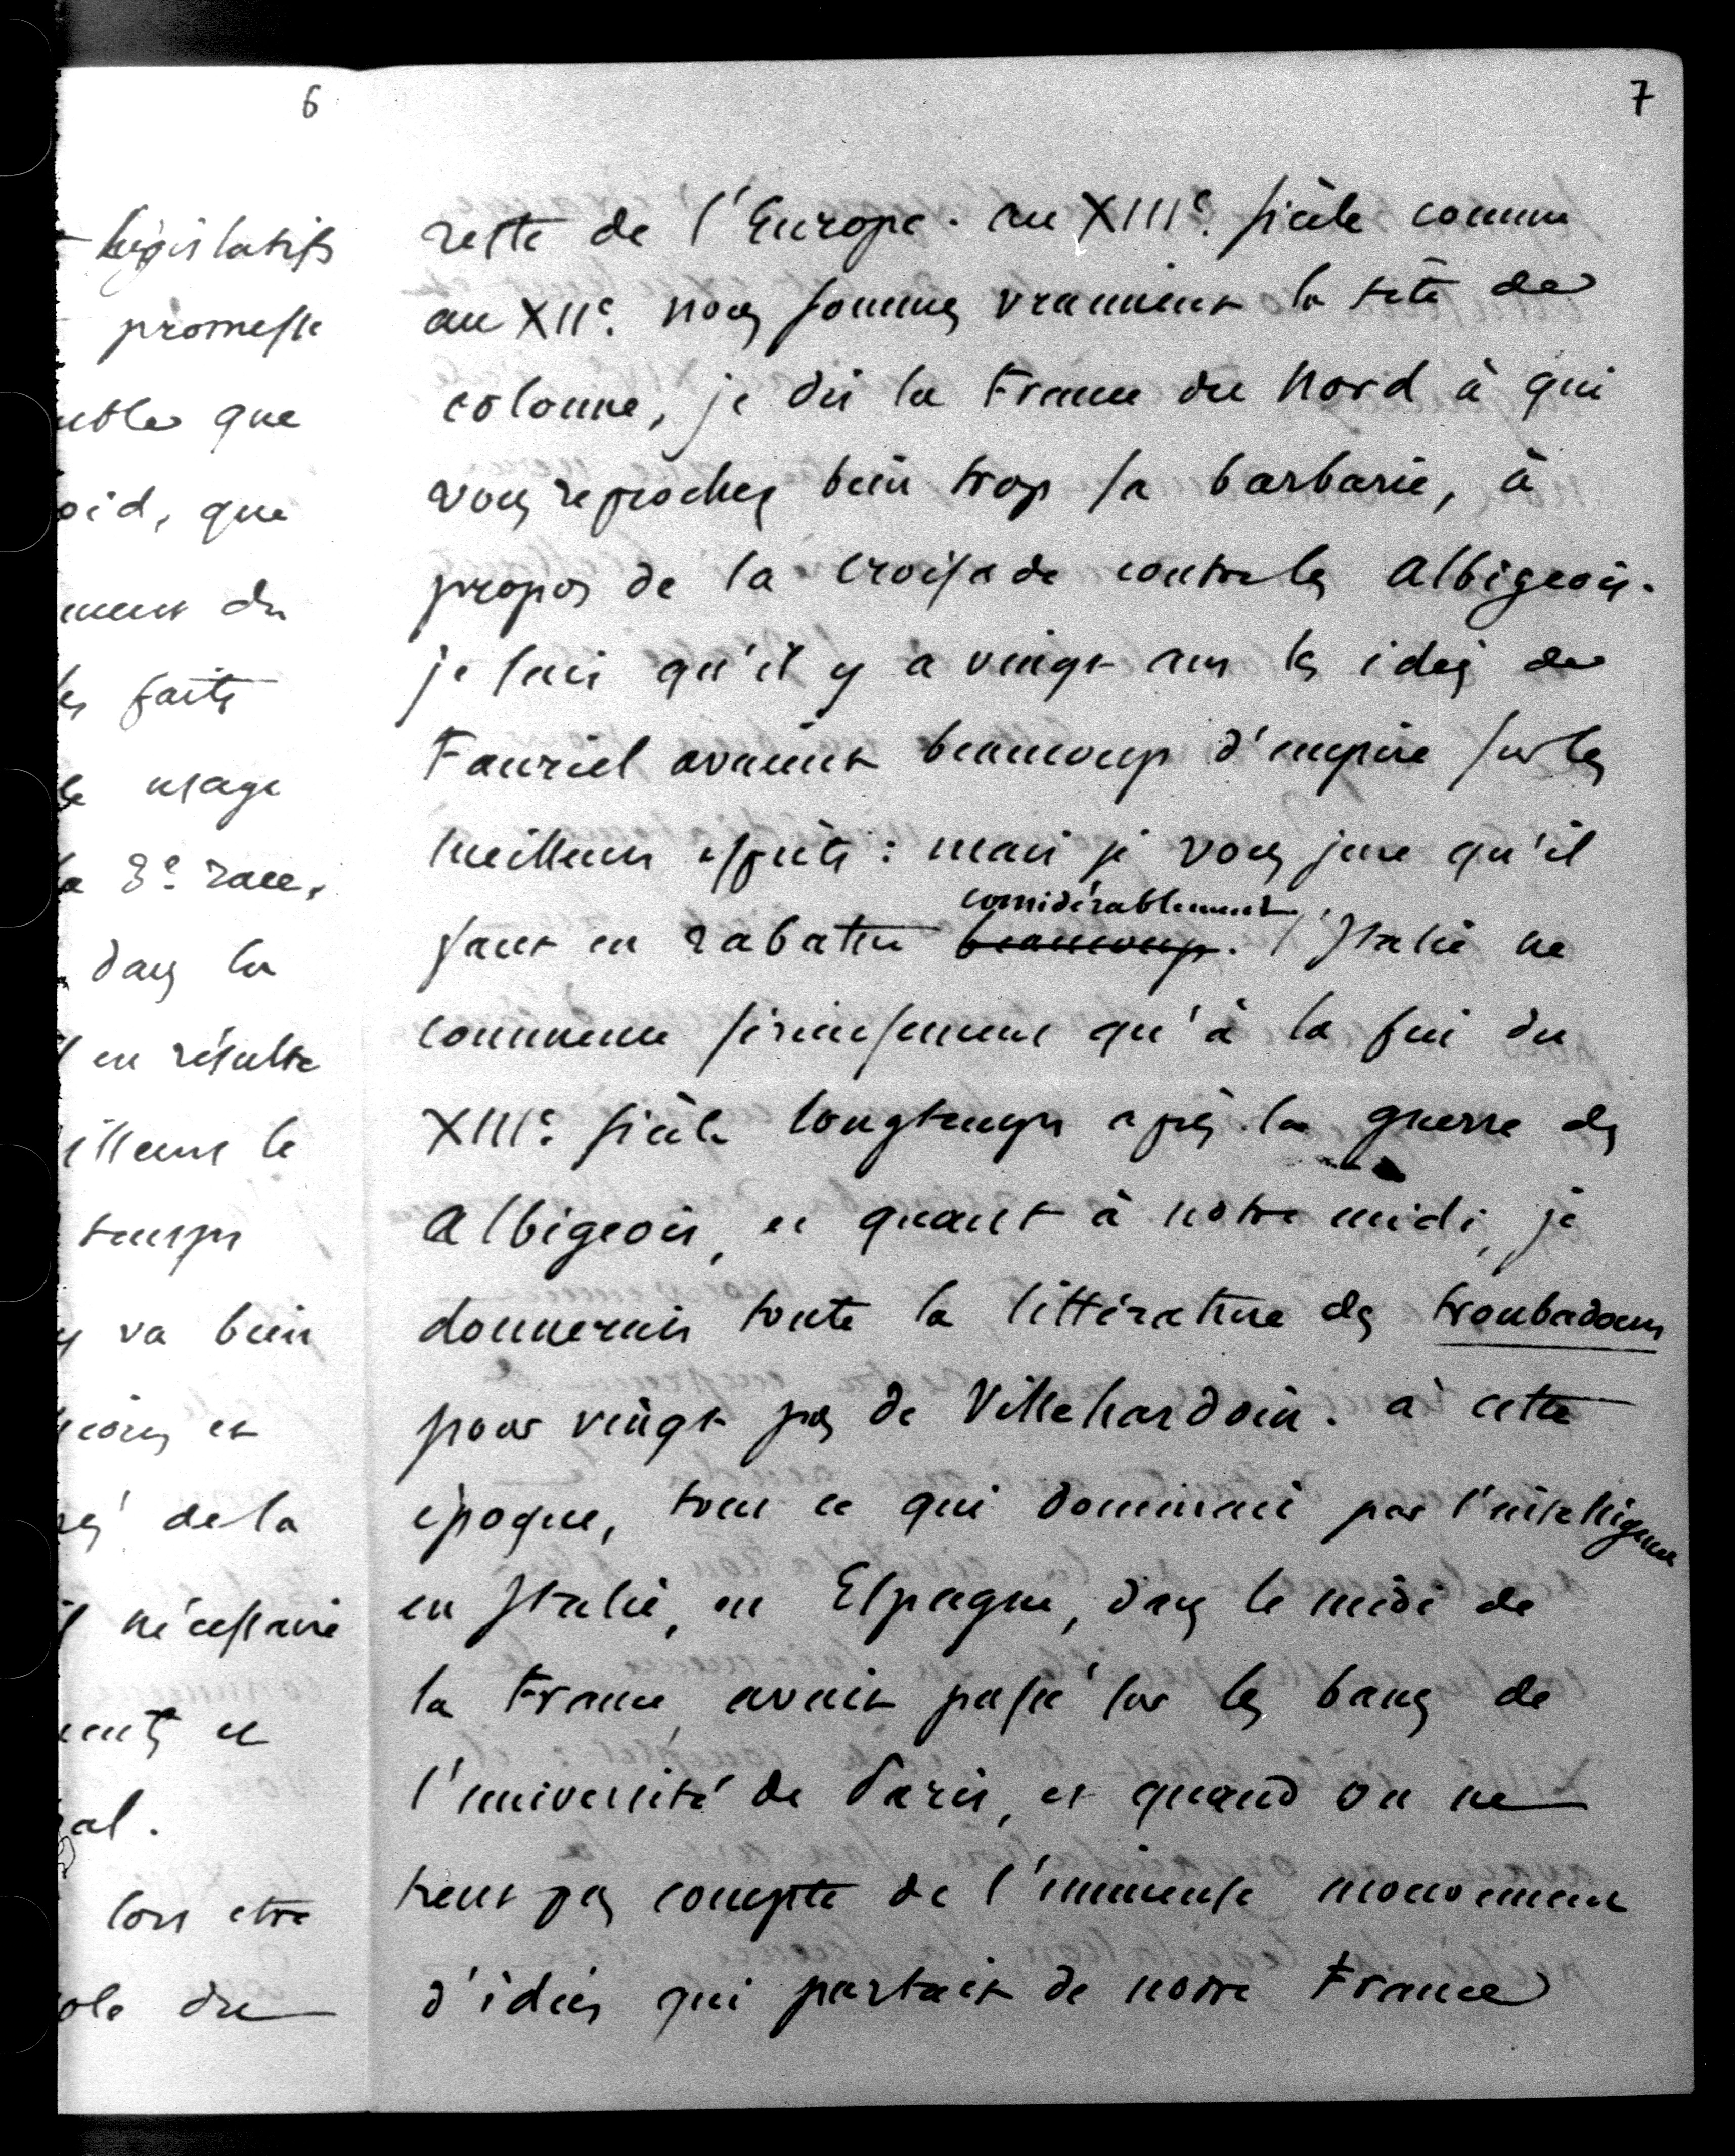 6
législatifs
promesse
que
que
du
faits
usage
3e. race,
dans la
en résulte
le
temps
va bien
et
de la
nécessaire
et
lors etre
du
7
reste de l'Europe. au XIIIe. siècle comme
au XIIe. nous sommes vraiment la tête de
colonne, je dis la France du Nord à qui
vous reprochez bien trop sa barbarie, à
propos de la croisade contre les Albigeois.
je sais qu'il y a vingt ans les idées de
Fauriel avaient beaucoup d'empire sur les
meilleurs esprits : mais je vous jure qu'il
considérablement
faut en rabattre beaucoup. l'Italie ne
commence sérieusement qu'à la fin du
XIIIe. siècle longtemps après la guerre des
Albigeois, et quant à notre midi, je
donnerais toute la littérature des troubadours
pour vingt pag de Villehardoin. à cette
époque, tout ce qui dominait par l'intelligence
en Italie, en Espagne, dans le midi de
la France, avait passé sur les bancs de
l'université de Paris, et quand on ne
tient pas compte de l'immense mouvement
d'idées qui partait de notre France